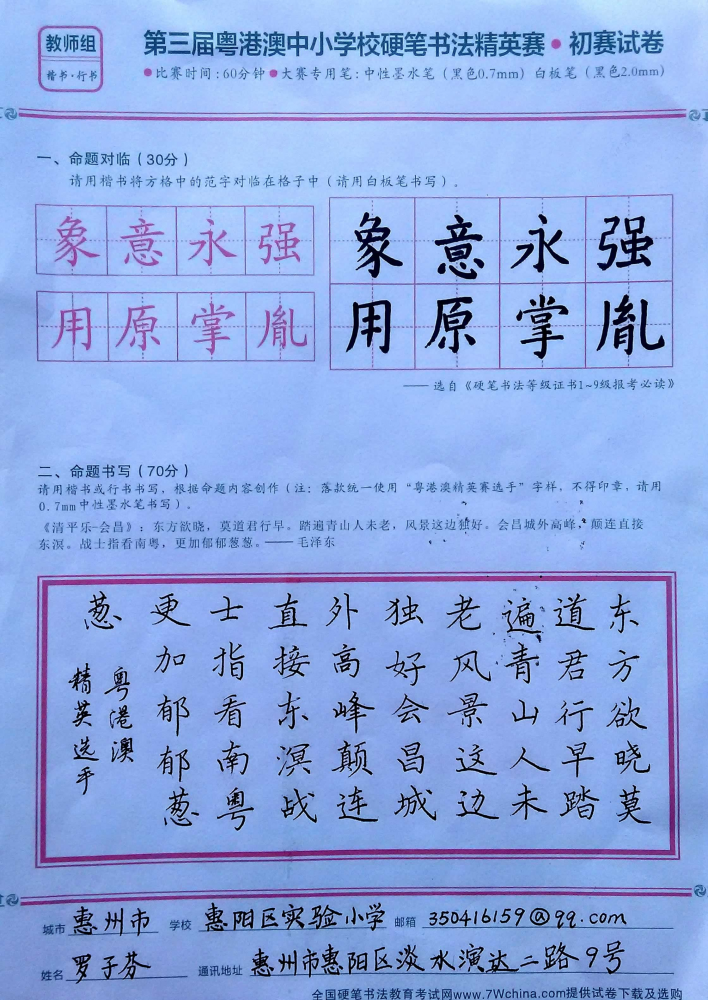 教师组
楷书·行书
第三届粤港澳中小学校硬笔书法精英赛·初赛试卷
●比赛时间:60分钟●大赛专用笔:中性墨水笔（黑色0.7mm）白板笔（黑色2.0mm）
一、命题对临（30分）
请用楷书将方格中的范字对临在格子中（请用白板笔书写）。
象意永强
用原掌胤
象意永强
用原掌胤
——选自《硬笔书法等级证书1~9级报考必读》
二、命题书写（70分）
请用楷书或行书书写，根据命题内容创作（注：落款统一使用“粤港澳精英赛选手”字样，不得印章，请用
0.7mm中性墨水笔书写）。
《清平乐-会昌》：东方欲晓，莫道君行早。踏遍青山人未老，风景这边独好。会昌城外高峰，颠连直接
东溟。战士指看南粤，更加郁郁葱葱。——毛泽东
东方欲晓莫
道君行早踏
遍青山人未
老风景这边
独好会昌城
外高峰颠连
直接东溟战
士指看南粤
更加郁郁葱
葱
粤港澳
精英选手
城市 惠州市 学校 惠阳区实验小学 邮箱 350416159@qq.com
姓名 罗子芬 通讯地址 惠州市惠阳区淡水演达二路9号
全国硬笔书法教育考试网www.7Wchina.com提供试卷下载及选购